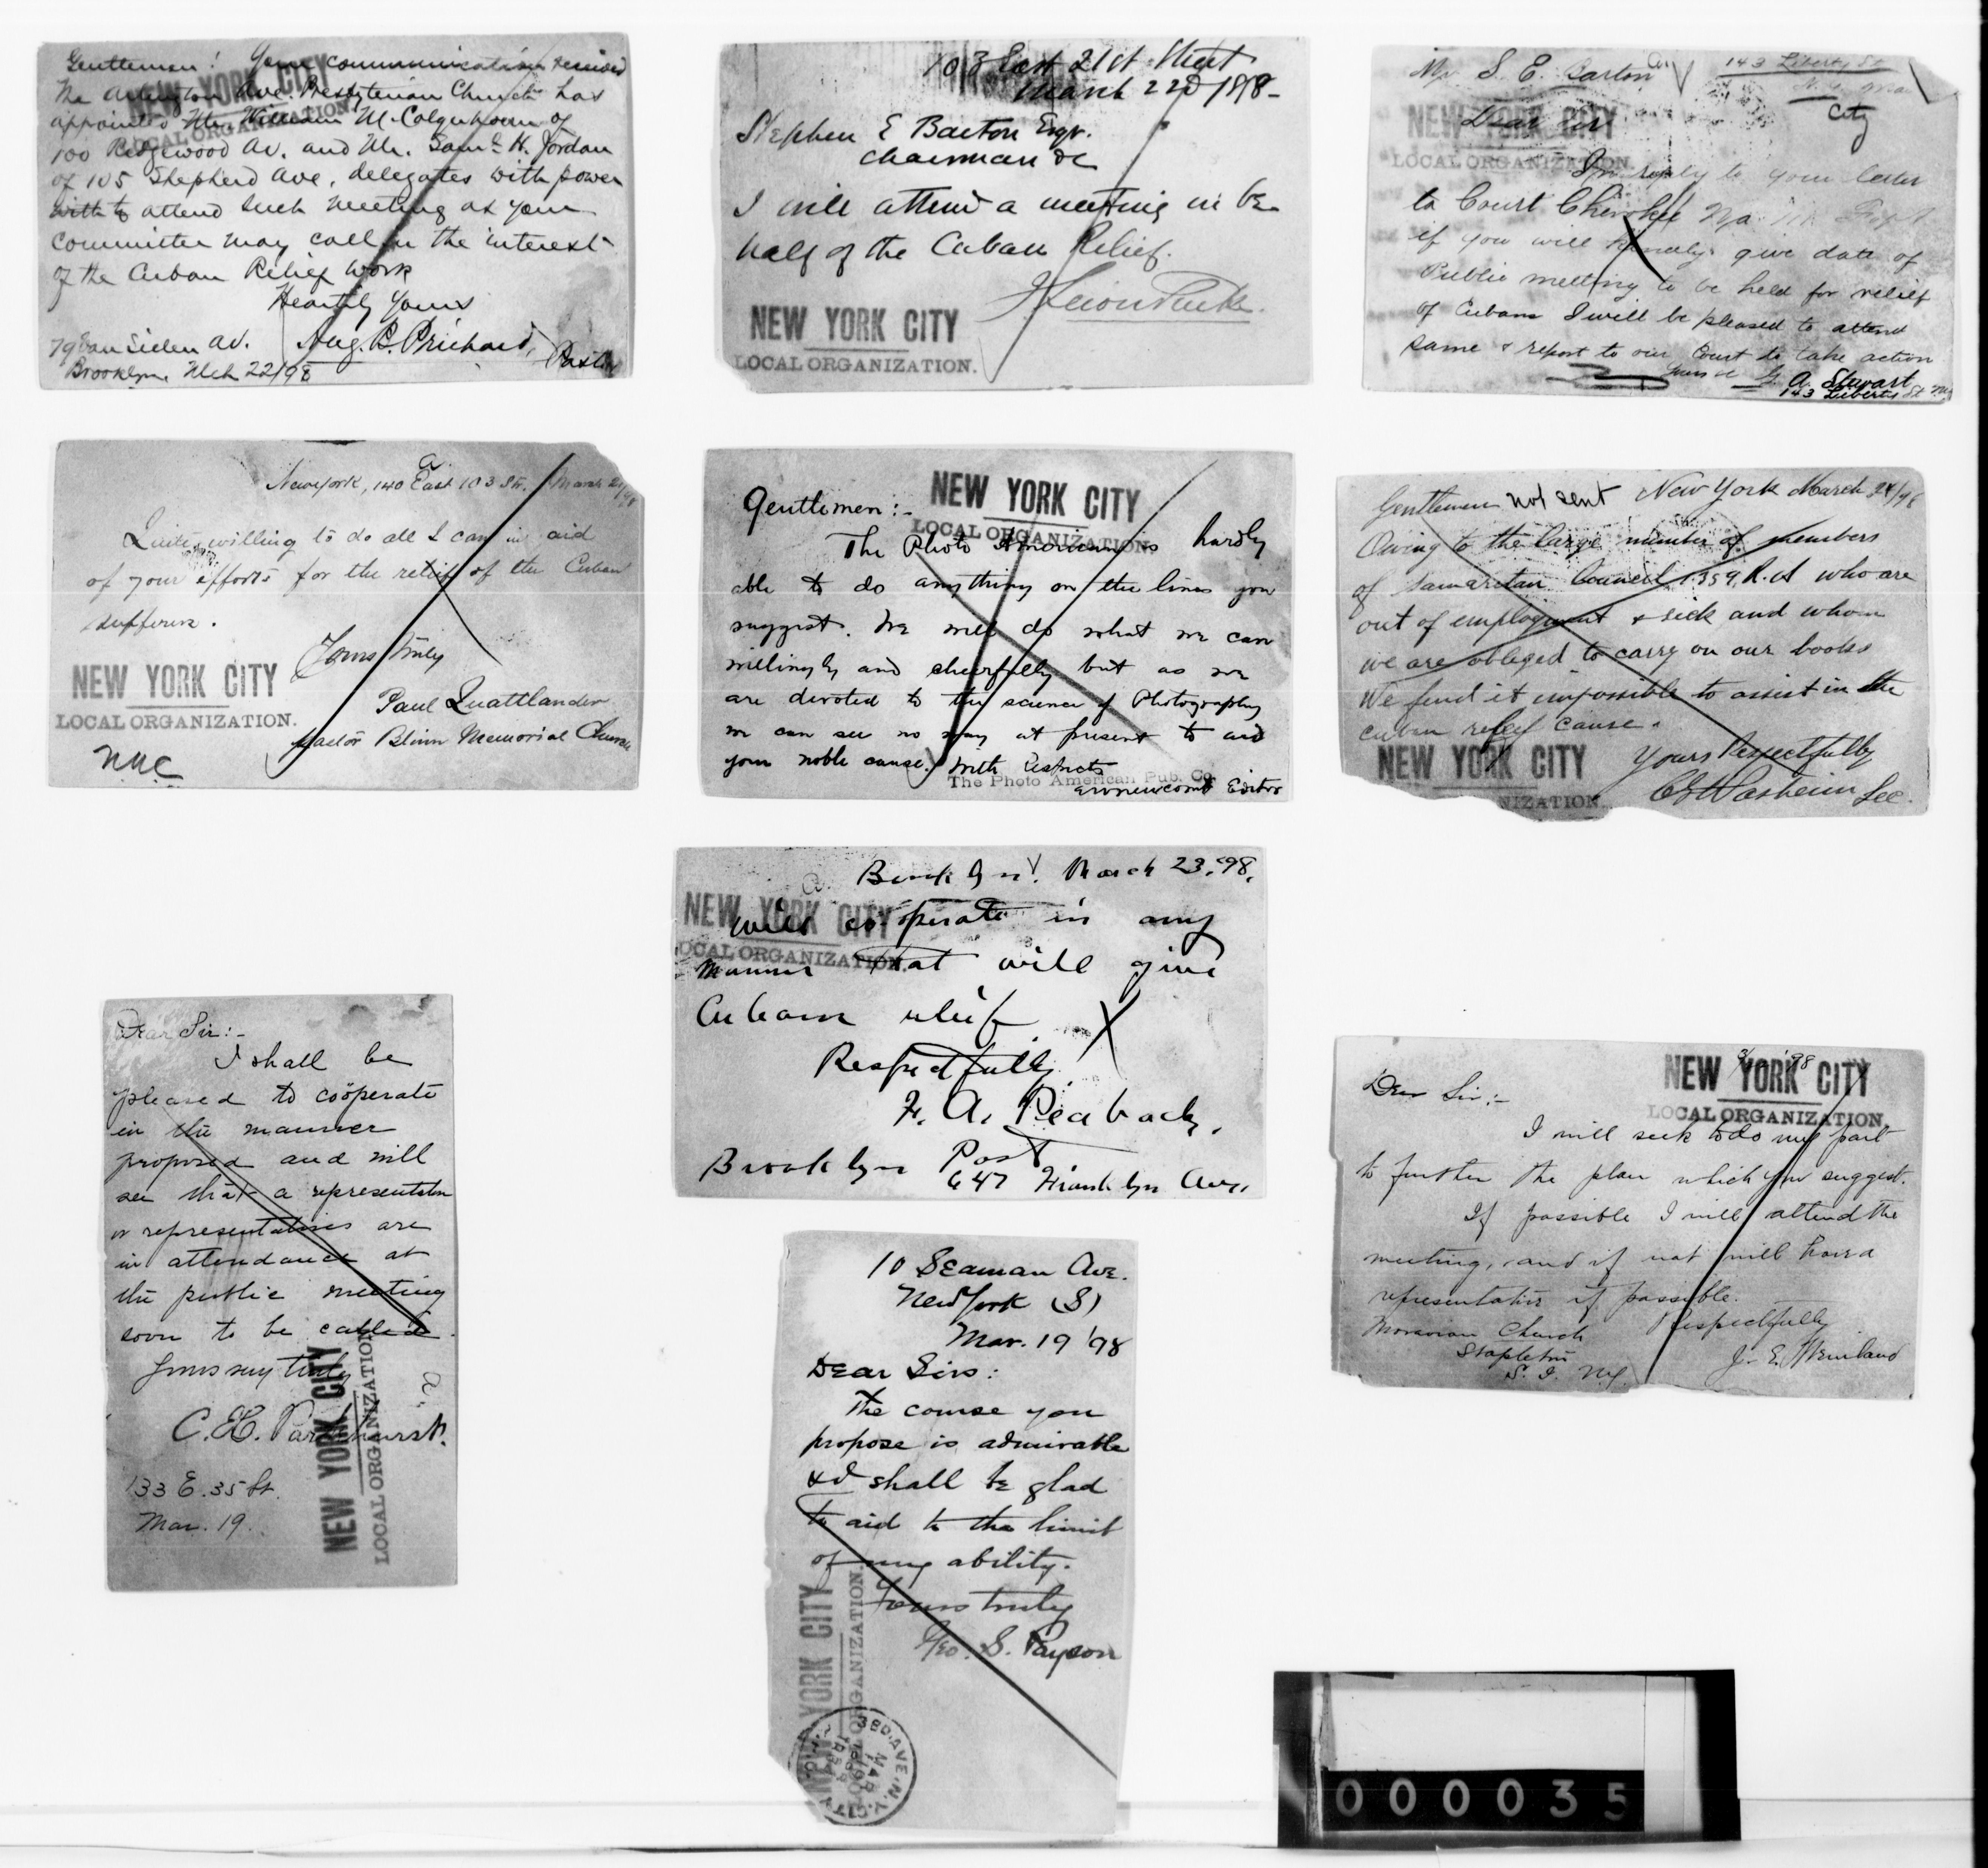 Gentlemen! Your communication received
The Arlington Ave. Presbyterian Church has
appointed Mr. William M. Colquhoun of
100 Ridgewood Av. and Mr. Saml. H. Jordan
of 105 Shepherd Ave, delegates with power
with to attend such meeting as your
committee may call in the interest
of the Cuban Relief Work
Heartily Yours
Aug. B. Prichard,
Pastor
79 Van Siclen Av.
Brooklyn, Mch 22/98
NEW YORK CITY
LOCAL ORGANIZATION.
103 East 21st Street
March 22d 1898-
Stephen E Barton Esqr.
Chairman &c
I will attend a meeting in be-
half of the Cuban Relief.
NEW YORK CITY
LOCAL ORGANIZATION.
Mr S. E. Barton
143 Liberty St
City
NEW YORK CITY
LOCAL ORGANIZATION.
Dear Sir
In reply to your letter
to Court Cherokee No.
if you will kindly give date of
Public meeting to be held for relief
of Cubans I will be pleased to attend
same & report to our Court to take action
Yours &c G. A. Stewart
143 Liberty St N.Y.
a.
New York, 140 East 103 Str. March 21/98
Quite willing to do all I can in aid
of your efforts for the relief of the Cuban
sufferers.
Yours truly
Paul Quattlander
Pastor Blinn Memorial Church
NEW YORK CITY
LOCAL ORGANIZATION.
NYC
NEW YORK CITY
LOCAL ORGANIZATION.
Gentlemen:-
The Photo American is hardly
able to do anything on the lines you
suggest. We will do what we can
willingly and cheerfully but as we
are devoted to the science of Photography
we can see no way at present to aid
your noble cause. With Respects
The Photo American Pub. Co.
Editor
Gentlemen not sent New York March 24/98
Owing to the large number of members
of Samaritan Council 1359, R. A who are
out of employment & sick and whom
we are obliged to carry on our books
We find it impossible to assist in the
cuban relief cause.
Yours Respectfully
Sec.
NEW YORK CITY
NIZATION.
Brooklyn. March 23, '98.
NEW YORK CITY
LOCAL ORGANIZATION.
Will co-operate in any
manner that will give
Cuban relief.
Respectfully
F. A. Peabody,
Brooklyn Post
647 Franklin Ave.
Dear Sir:-
I shall be
pleased to coöperate
in the manner
proposed and will
see that a representative
or representatives are
in attendance at
the public meeting
soon to be called.
Yours very truly
C. H. Parkhurst.
133 E. 35 St.
Mar. 19.
a.
NEW YORK CITY
LOCAL ORGANIZATION.
10 Seaman Ave.
New York (S)
Mar. 19 '98
Dear Sirs:
The course you
propose is admirable
& I shall be glad
to aid to the limit
of my ability.
Yours truly
Geo. S. Payson
NEW YORK CITY
LOCAL ORGANIZATION.
NEW YORK CITY
LOCAL ORGANIZATION.
Dear Sir:-
I will seek to do my part
to further the plan which you suggest.
If possible I will attend the
meeting, and if not will have a
representative if possible.
Respectfully
J. E. Weinland
Moravian Church
Stapleton
S. I. N.Y.
000035